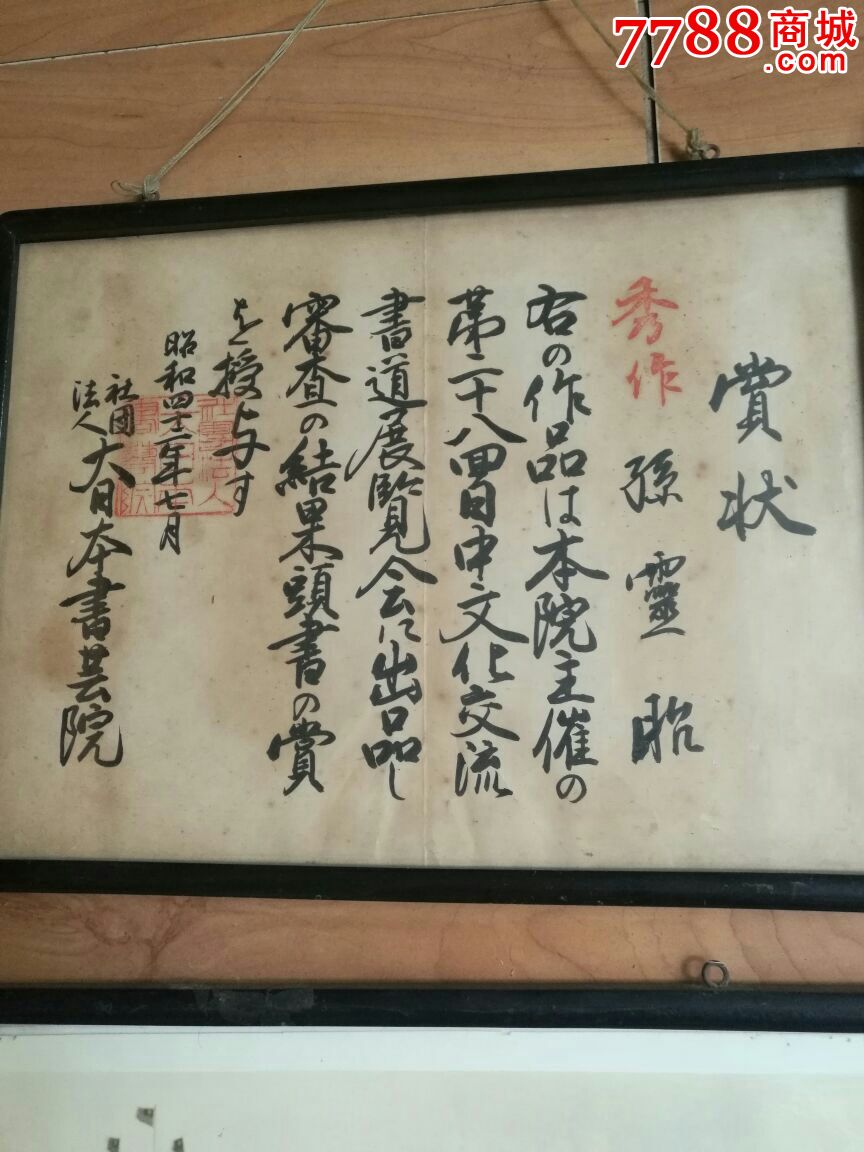 7788商城
.com
賞状
秀作 孫靈昭
右の作品は本院主催の
第二十八回日中文化交流
書道展覧会に出品し
審査の結果頭書の賞
を授与す
昭和四十二年七月
社団
法人
大日本書芸院